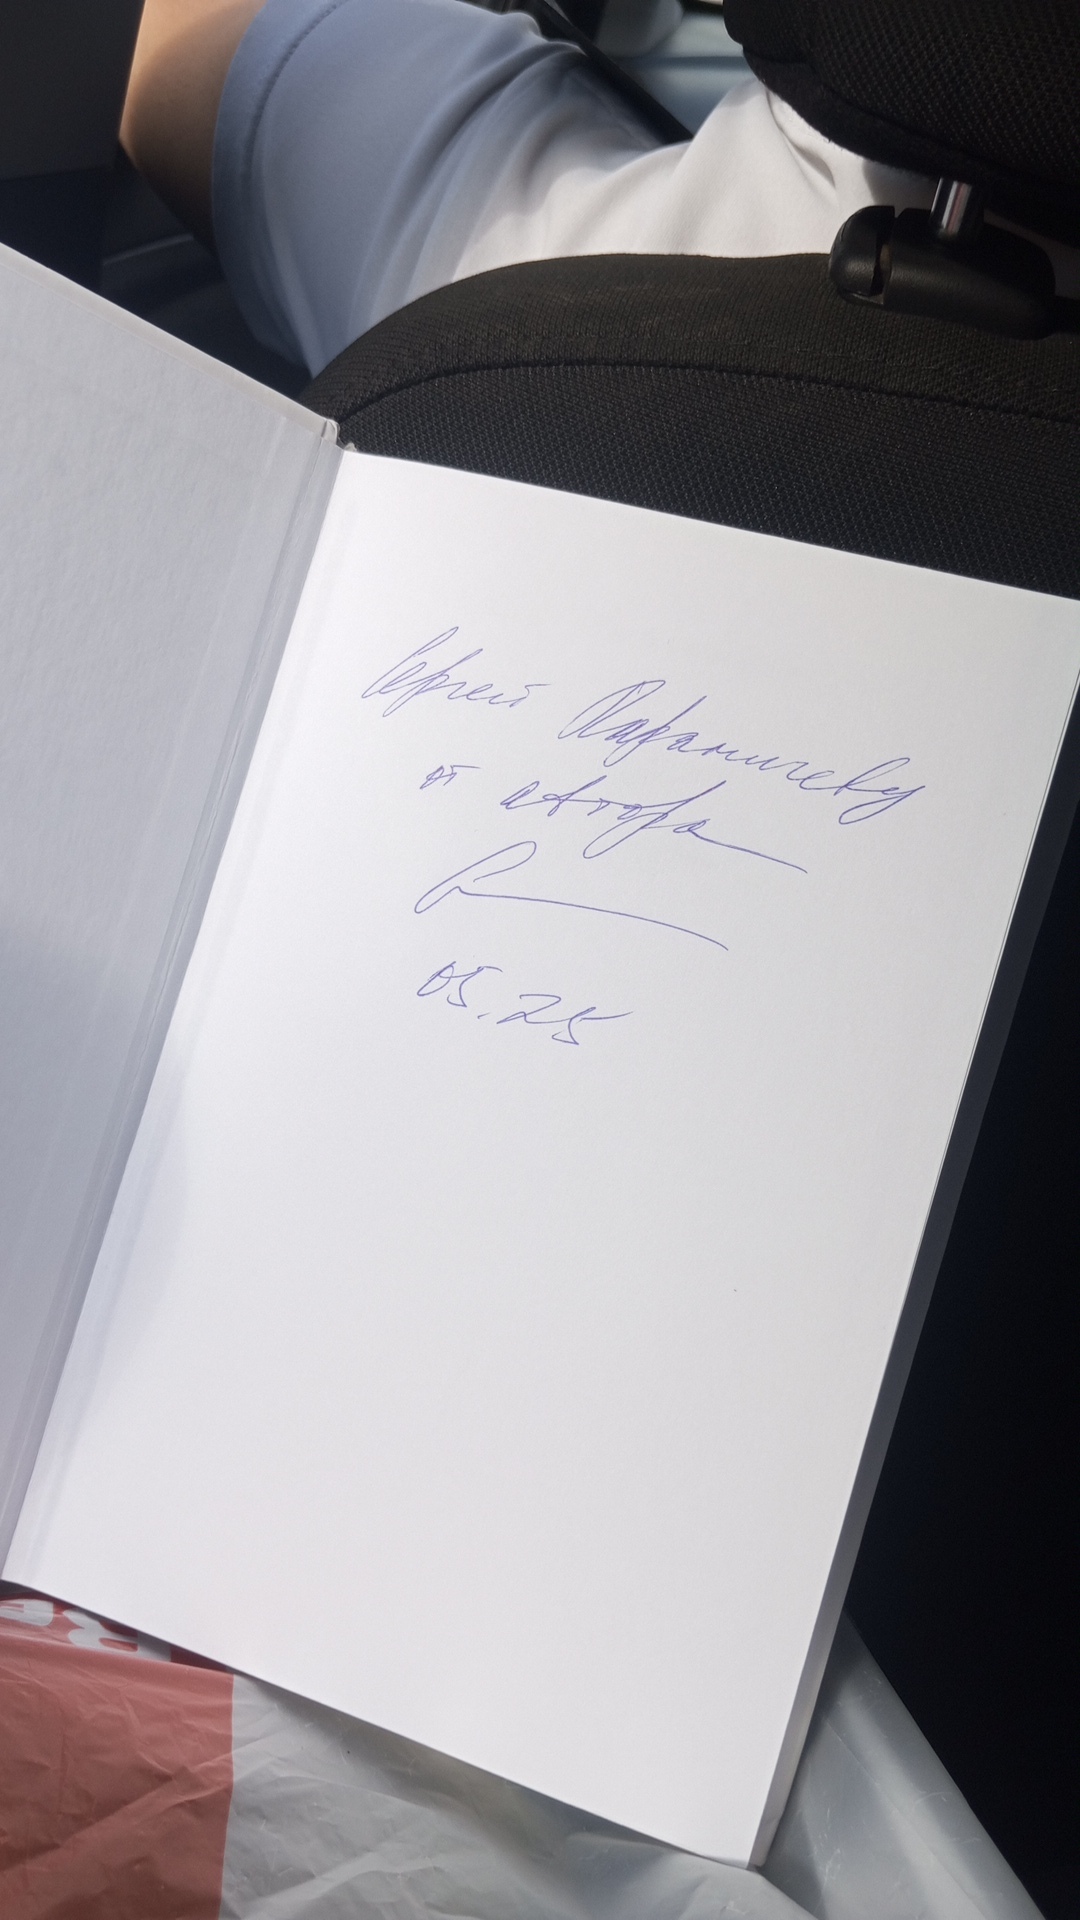 Сергей
от автора
05.25